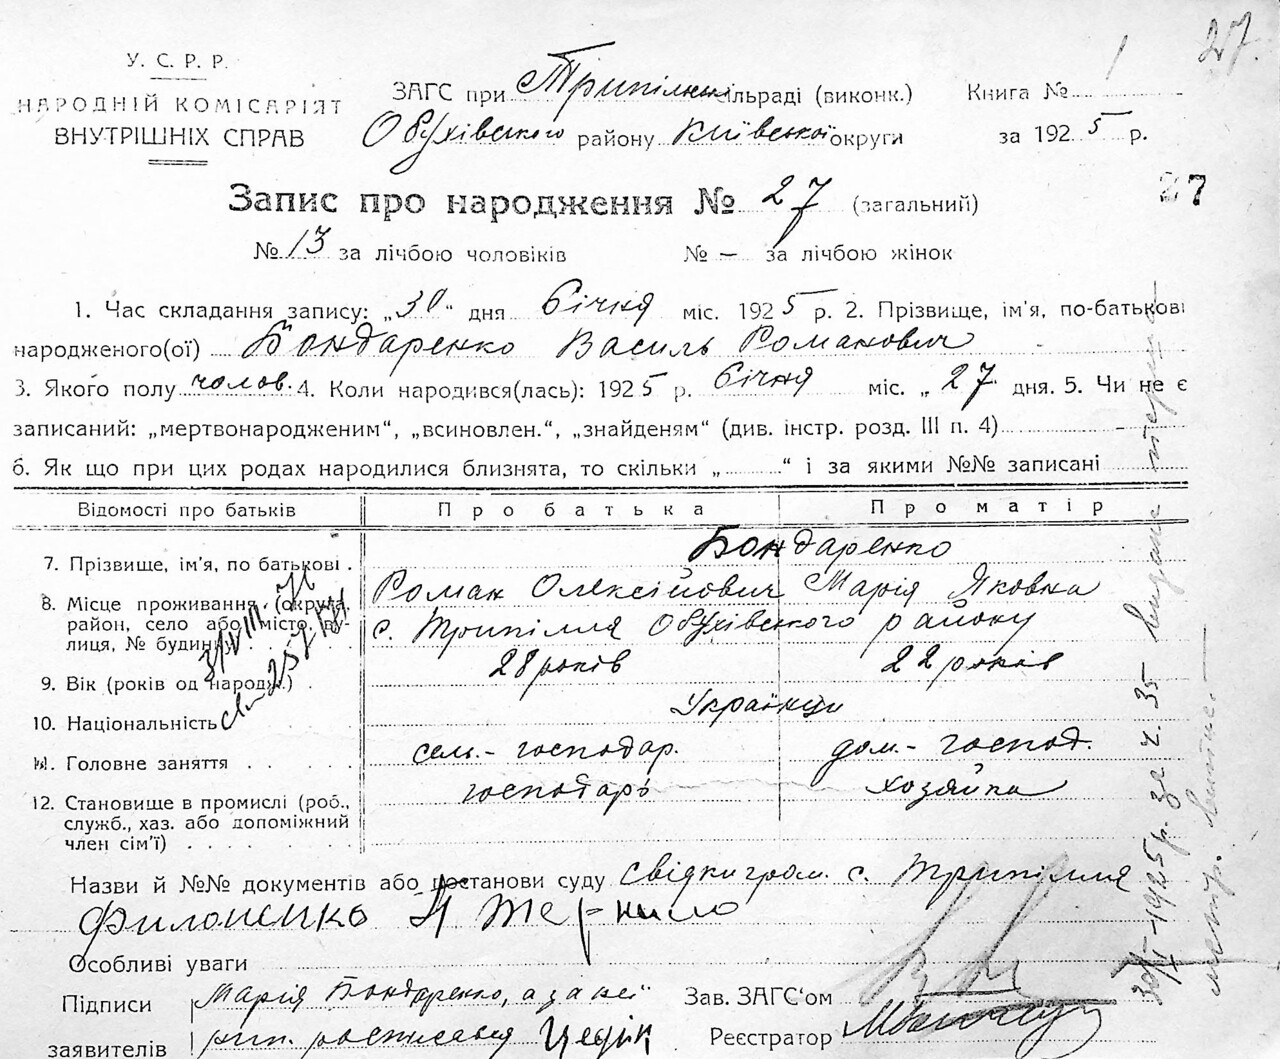 27.
У. С. Р. Р.
НАРОДНІЙ КОМІСАРІЯТ
ВНУТРІШНІХ СПРАВ
ЗАГС при Трипільск. сільраді (виконк.)
Обухівского району Київської округи
Книга № 1
за 1925 р.
Запис про народження № 27 (загальний)
27
№ 13 за лічбою чоловіків № — за лічбою жінок
1. Час складання запису: „30" дня Січня міс. 1925 р. 2. Прізвище, ім'я, по-батькові
народженого(ої) Бондаренко Василь Романович
3. Якого полу чолов. 4. Коли народився(лась): 1925 р. Січня міс. „27" дня. 5. Чи не є
записаний: „мертвонародженим", „всиновлен.", „знайденям" (див. інстр. розд. III п. 4) -
6. Як що при цих родах народилися близнята, то скільки „ " і за якими №№ записані
Відомості про батьків Про батька Про матір
7. Прізвище, ім'я, по батькові . Бондаренко
Роман Олексійович Марія Яковна
8. Місце проживання (округа, район, село або місто, вулиця, № будинку с. Трипілля Обухівского району
9. Вік (років од народж.) . 28 років 22 років
10. Національність Українци
11. Головне заняття . . . сель.- господар. дом.- господ.
12. Становище в промислі (роб., служб., хаз. або допоміжний член сім'ї) . . . . господарь хозяйка
Назви й №№ документів або постанови суду свідки гром. с. Трипілля
Филоненко
Особливі уваги
Підписи
заявителів
Марія Бондаренко, а за неї
росписався Цедік
Зав. ЗАГС'ом
Реєстратор
30/I-1925 р. за ч. 35